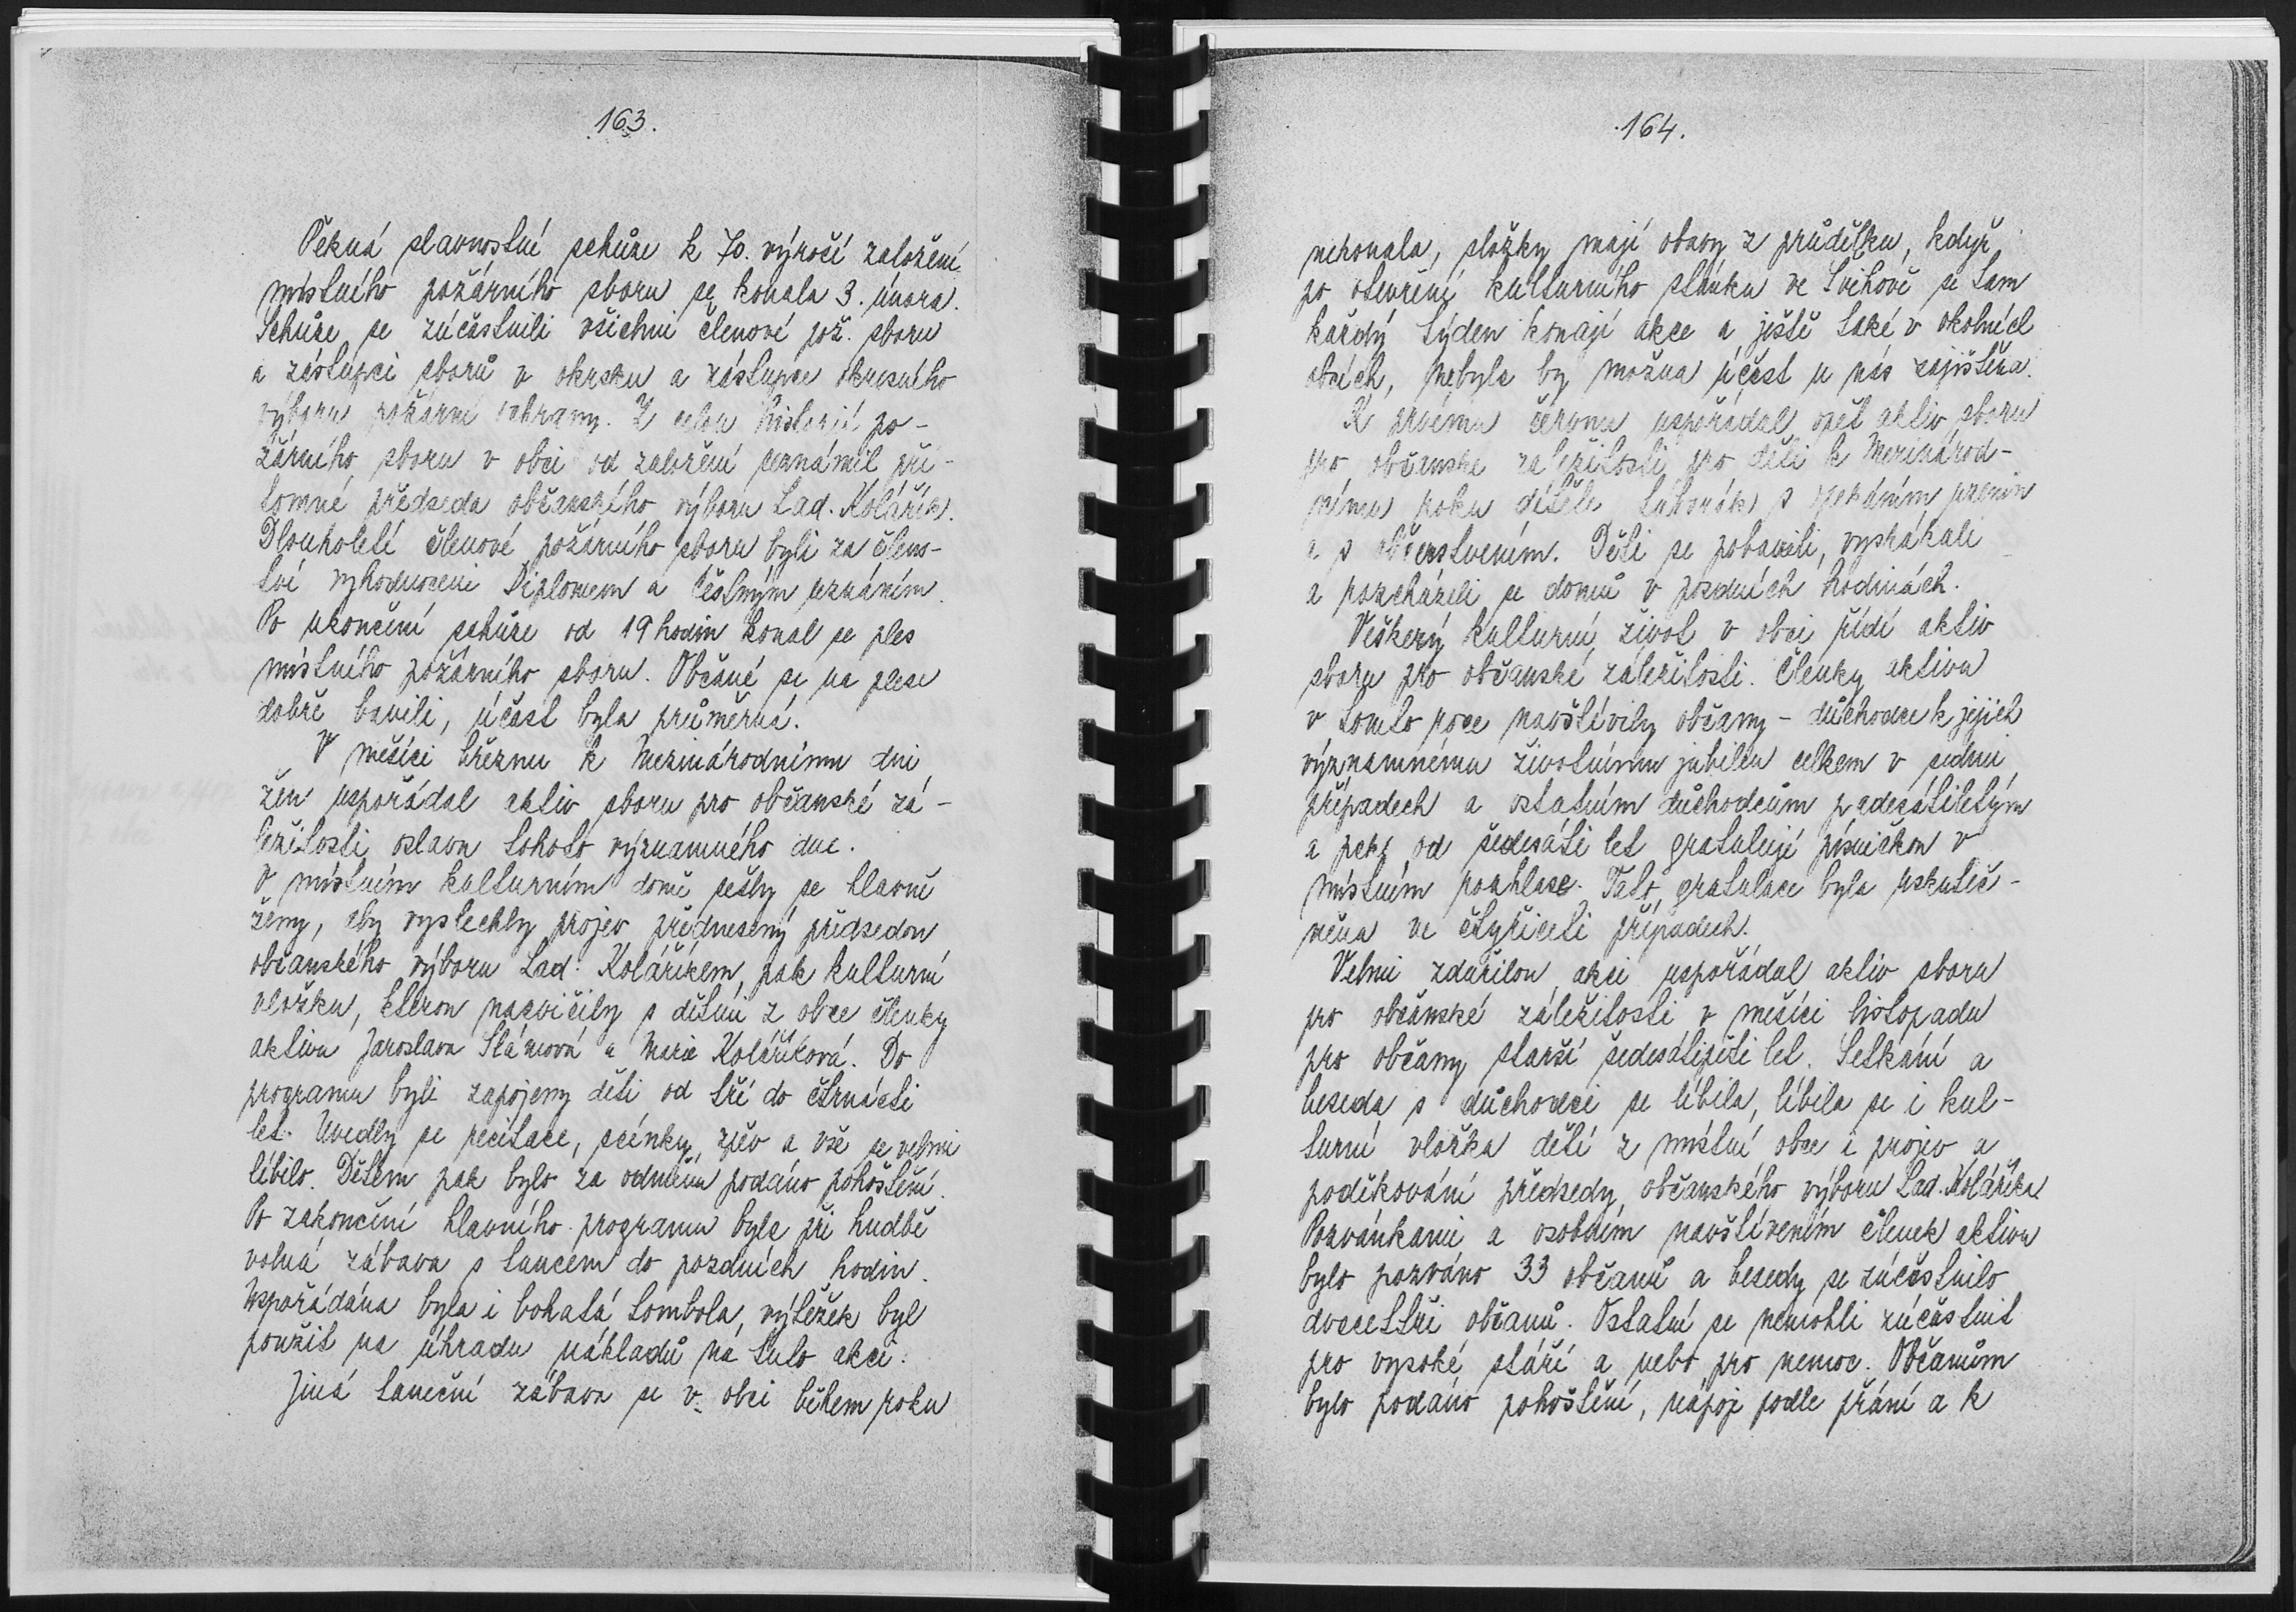 163.
Pěkná slavnostní schůze k 70. výročí založení
místního požárního sboru se konala 3. února.
Schůze se zúčastnili všichni členové pož. sboru
a zástupci sborů v okrsku a zástupce okresního
výboru požární ochrany. Z celou historií po-
žárního sboru v obci od založení seznámil pří-
tomné předseda občanského výboru Lad. Kolářík.
Dlouholetí členové požárního sboru byli za člens-
tví vyhodnoceni Diplomem a Čestným uznáním.
Po ukončení schůze od 19 hodin konal se ples
místního požárního sboru. Občané se na plese
dobře bavili, účast byla průměrná.
V měsíci březnu k Mezinárodnímu dni
žen uspořádal aktiv sboru pro občanské zá-
ležitosti oslavu tohoto významného dne.
V místním kulturním domě sešly se hlavně
ženy, aby vyslechly projev přednesený předsedou
občanského výboru Lad. Koláříkem, pak kulturní
vložku, kterou nacvičily s dětmi z obce členky
aktivu Jaroslava Slámová a Marie Koláříková. Do
programu byli zapojeny děti od tří do čtrnácti
let. Uvedly se recitace, scénky, zpěv a vše se velmi
líbilo. Dětem pak bylo za odměnu podáno pohoštění.
Po zakončení hlavního programu byla při hudbě
volná zábava s tancem do pozdních hodin.
Uspořádána byla i bohatá tombola, výtěžek byl
použit na úhradu nákladů na tuto akci.
Jiná taneční zábava se v obci během roku
164.
nekonala, složky mají obavy z průdělku, když
po otevření kulturního stánku ve Švihově se tam
každý týden konají akce a ještě také v okolních
obcích, nebyla by možná účast u nás zajištěna.
K prvému červnu uspořádal opět aktiv sboru
pro občanské záležitosti pro děti k Mezinárod-
nímu roku dítěte táborák s opékáním uzenin
a s občerstvením. Děti se pobavili, vyskákali
a rozcházeli se domů v pozdních hodinách.
Veškerý kulturní život v obci řídí aktiv
sboru pro občanské záležitosti. Členky aktivu
v tomto roce navštívily občany - důchodce k jejich
významnému životnímu jubileu celkem v sedmi
případech a ostatním důchodcům padesátiletým
a pak od šedesáti let gratulují písničkou v
místním rozhlase. Tato gratulace byla uskuteč-
něna ve čtyřiceti případech.
Velmi zdařilou akci uspořádal aktiv sboru
pro občanské záležitosti v měsíci listopadu
pro občany starší šedesátipěti let. Setkání a
beseda s důchodci se líbila, líbila se i kul-
turní vložka dětí z místní obce i projev a
poděkování předsedy občanského výboru Lad. Koláříka
Pozvánkami a osobním navštívením členek aktivu
bylo pozváno 33 občanů a besedy se zúčastnilo
dvacettři občanů. Ostatní se nemohli zúčastnit
pro vysoké stáří a nebo pro nemoc. Občanům
bylo podáno pohoštění, nápoj podle přání a k